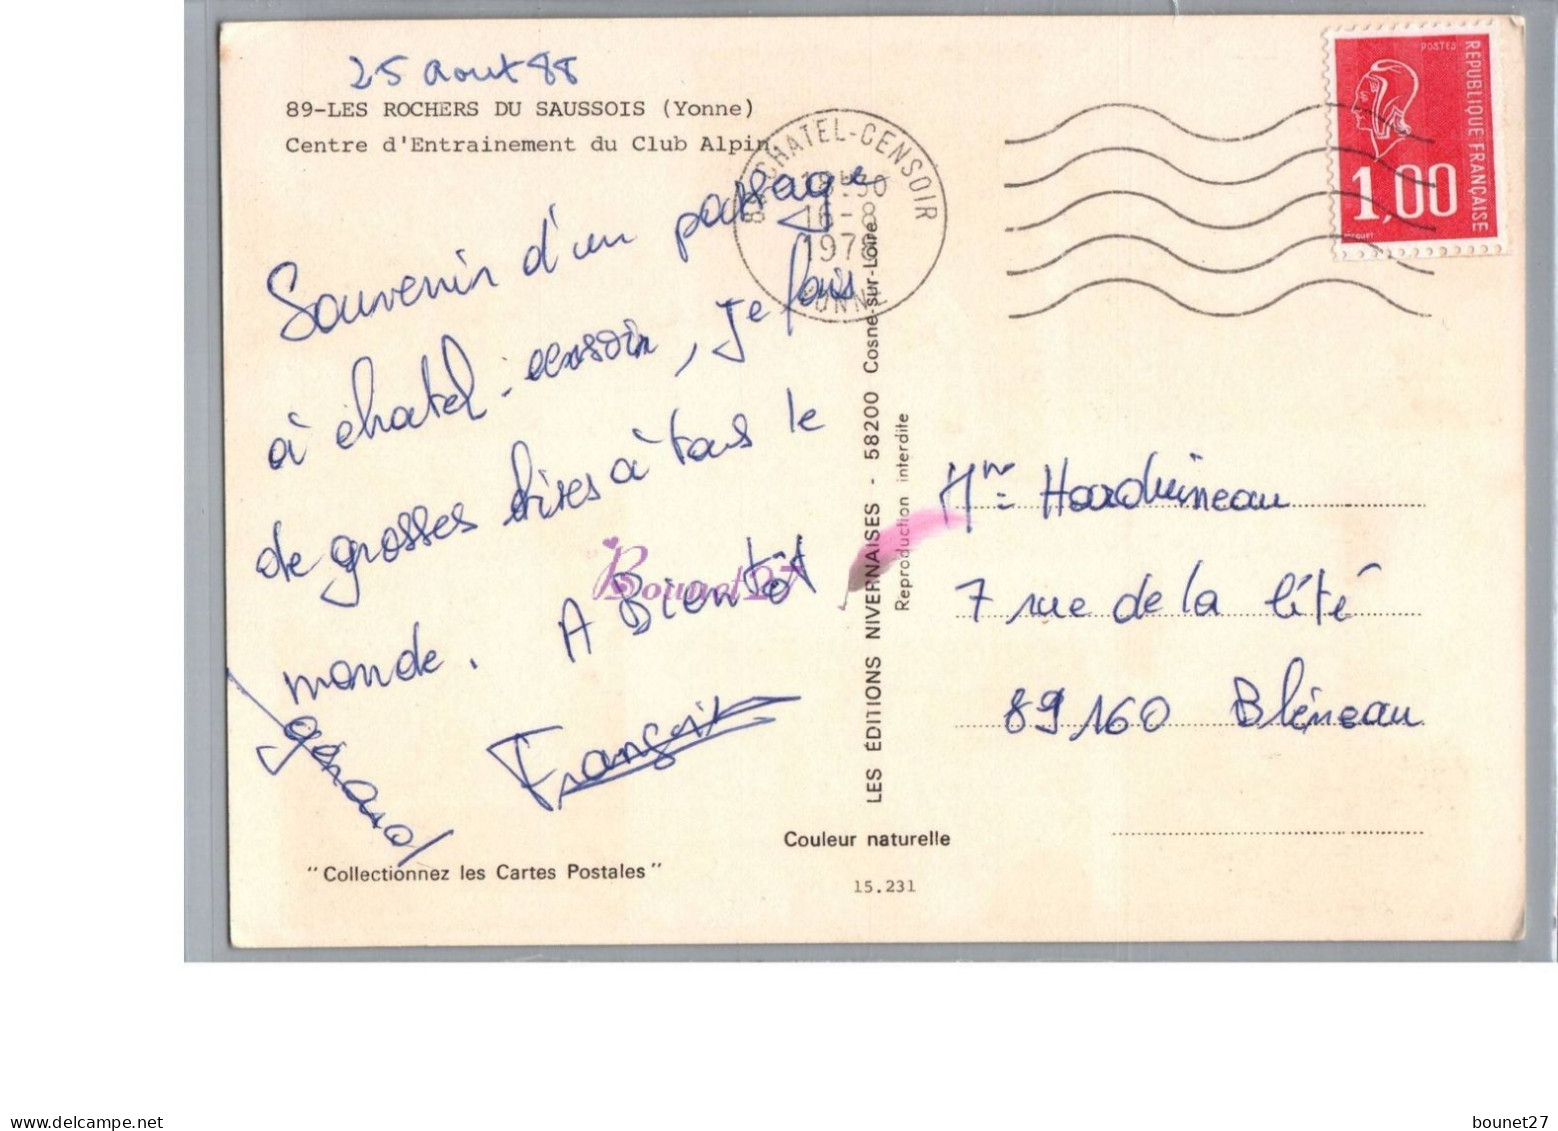 25 aout 88
89-LES ROCHERS DU SAUSSOIS (Yonne)
Centre d'Entrainement du Club Alpin
Souvenir d'un passage
à chatel-censoir, je fais
de grosses bises à tous le
monde. A Bientôt
François
CHATEL-CENSOIR
18H30
16-8
1976
YONNE
POSTES
REPUBLIQUE FRANÇAISE
1,00
LES ÉDITIONS NIVERNAISES - 58200 Cosne-sur-Loire
Reproduction interdite
Bounet27
7 rue de la cité
89160 Bléneau
Couleur naturelle
"Collectionnez les Cartes Postales"
15.231
www.delcampe.net
bounet27